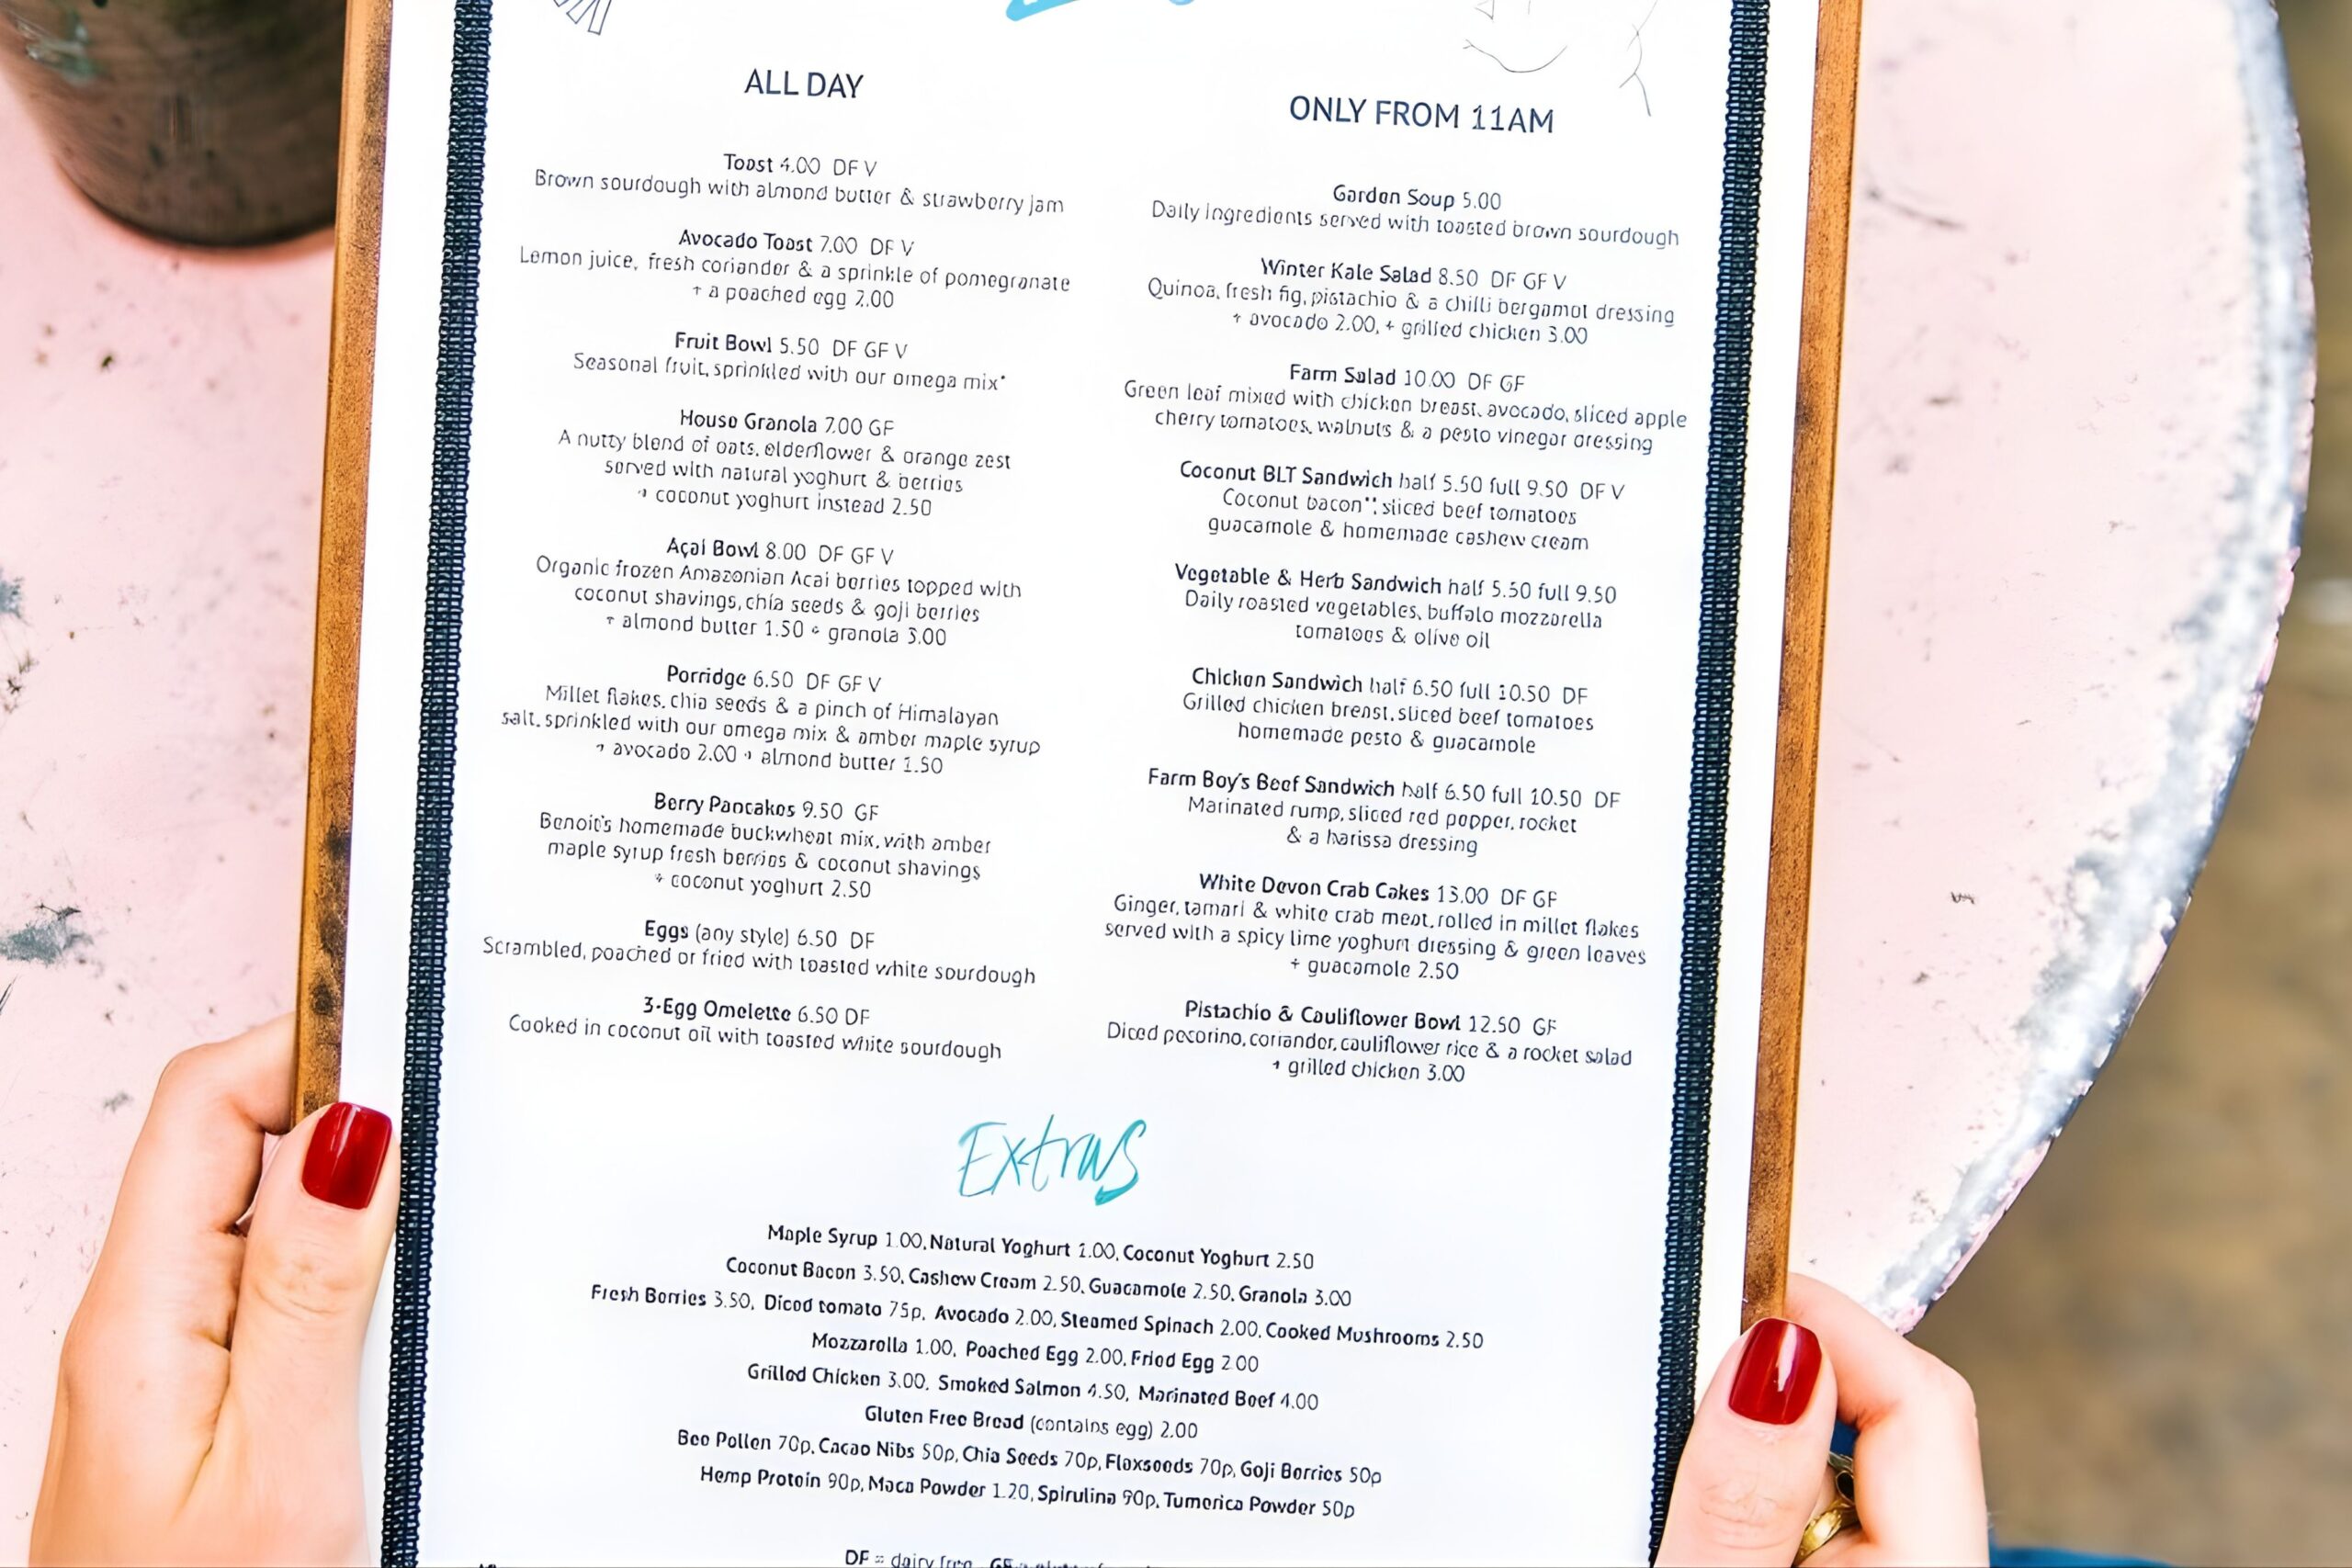 ALL DAY
Toast 4.00 DF V
Brown sourdough with almond butter & strawberry jam
Avocado Toast 7.00 DF V
Lemon juice, fresh coriander & a sprinkle of pomegranate
+ a poached egg 2.00
Fruit Bowl 5.50 DF GF V
Seasonal fruit, sprinkled with our omega mix*
House Granola 7.00 GF
A nutty blend of oats, elderflower & orange zest
served with natural yoghurt & berries
+ coconut yoghurt instead 2.50
Açai Bowl 8.00 DF GF V
Organic frozen Amazonian Acai berries topped with
coconut shavings, chia seeds & goji berries
+ almond butter 1.50 + granola 3.00
Porridge 6.50 DF GF V
Millet flakes, chia seeds & a pinch of Himalayan
salt, sprinkled with our omega mix & amber maple syrup
+ avocado 2.00 + almond butter 1.50
Berry Pancakes 9.50 GF
Benoit's homemade buckwheat mix, with amber
maple syrup fresh berries & coconut shavings
+ coconut yoghurt 2.50
Eggs (any style) 6.50 DF
Scrambled, poached or fried with toasted white sourdough
3-Egg Omelette 6.50 DF
Cooked in coconut oil with toasted white sourdough
ONLY FROM 11AM
Garden Soup 5.00
Daily ingredients served with toasted brown sourdough
Winter Kale Salad 8.50 DF GF V
Quinoa, fresh fig, pistachio & a chilli bergamot dressing
+ avocado 2.00, + grilled chicken 3.00
Farm Salad 10.00 DF GF
Green leaf mixed with chicken breast, avocado, sliced apple
cherry tomatoes, walnuts & a pesto vinegar dressing
Coconut BLT Sandwich half 5.50 full 9.50 DF V
Coconut bacon**, sliced beef tomatoes
guacamole & homemade cashew cream
Vegetable & Herb Sandwich half 5.50 full 9.50
Daily roasted vegetables, buffalo mozzarella
tomatoes & olive oil
Chicken Sandwich half 6.50 full 10.50 DF
Grilled chicken breast, sliced beef tomatoes
homemade pesto & guacamole
Farm Boy's Beef Sandwich half 6.50 full 10.50 DF
Marinated rump, sliced red pepper, rocket
& a harissa dressing
White Devon Crab Cakes 13.00 DF GF
Ginger, tamari & white crab meat, rolled in millet flakes
served with a spicy lime yoghurt dressing & green leaves
+ guacamole 2.50
Pistachio & Cauliflower Bowl 12.50 GF
Diced pecorino, coriander, cauliflower rice & a rocket salad
+ grilled chicken 3.00
Extras
Maple Syrup 1.00, Natural Yoghurt 1.00, Coconut Yoghurt 2.50
Coconut Bacon 3.50, Cashew Cream 2.50, Guacamole 2.50, Granola 3.00
Fresh Berries 3.50, Diced tomato 75p, Avocado 2.00, Steamed Spinach 2.00, Cooked Mushrooms 2.50
Mozzarella 1.00, Poached Egg 2.00, Fried Egg 2.00
Grilled Chicken 3.00, Smoked Salmon 4.50, Marinated Beef 4.00
Gluten Free Bread (contains egg) 2.00
Bee Pollen 70p, Cacao Nibs 50p, Chia Seeds 70p, Flaxseeds 70p, Goji Berries 50p
Hemp Protein 90p, Maca Powder 1.20, Spirulina 90p, Tumerica Powder 50p
DF = dairy free